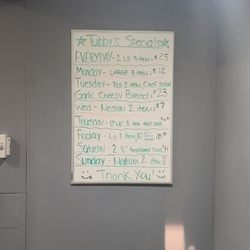 Tubby's Specials
EVERYDAY - 2 LG 3 item $25
Monday - LARGE 3 item $12
Tuesday - 2 item Chef Salad
Garlic Cheesy Bread $23
Wed - Medium 2 item $9
Thursday - 3 item
Friday - LG
Saturday 2 16" traditional
Sunday - Medium 2 item
Thank You!